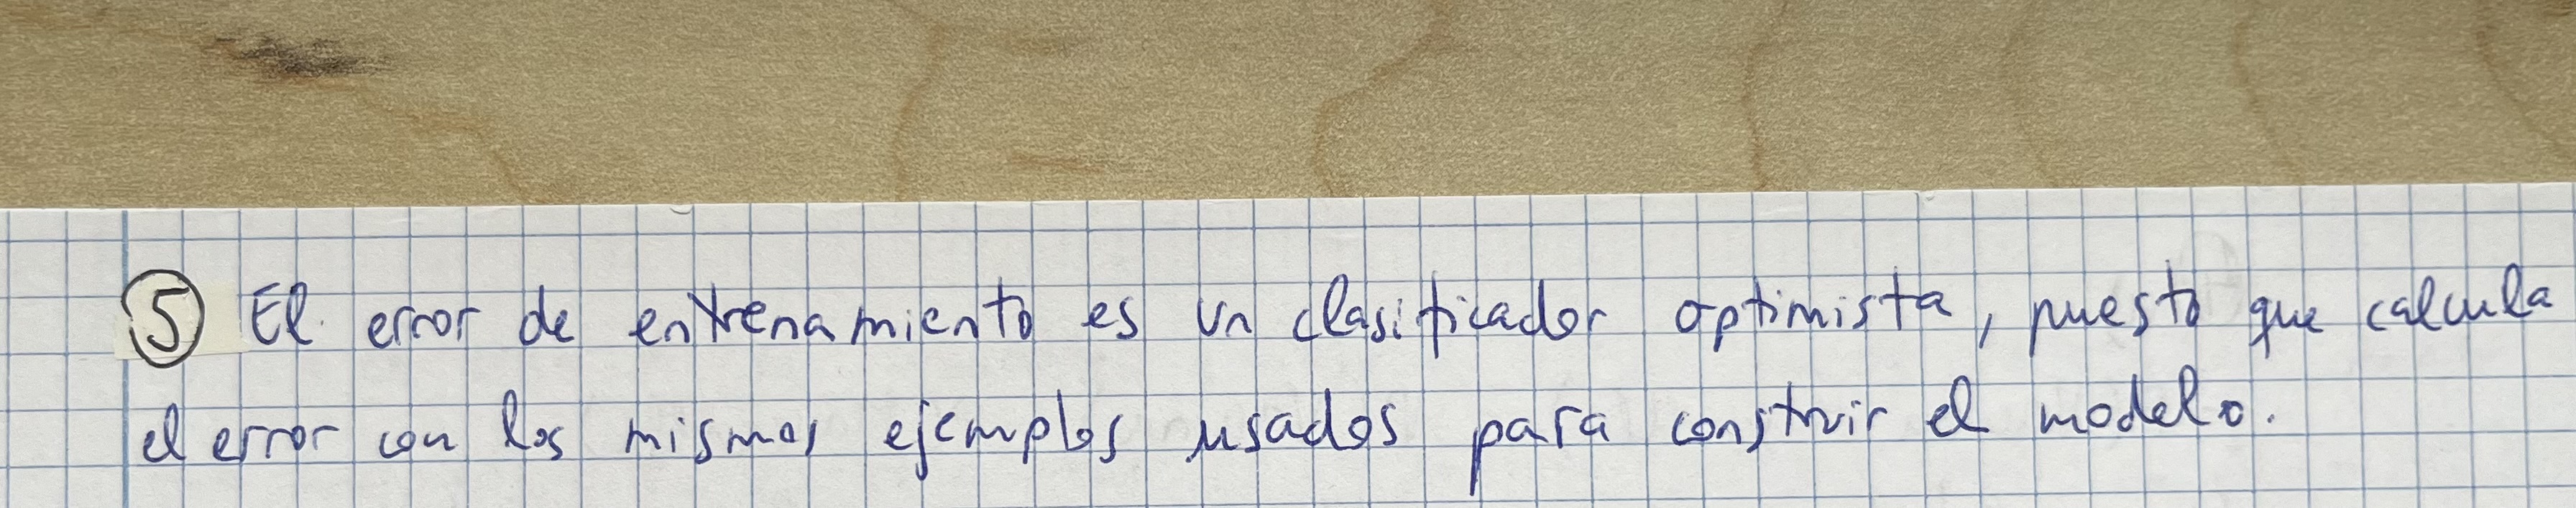 5 El error de entrenamiento es un clasificador optimista, puesto que calcula
el error con los mismos ejemplos usados para construir el modelo.